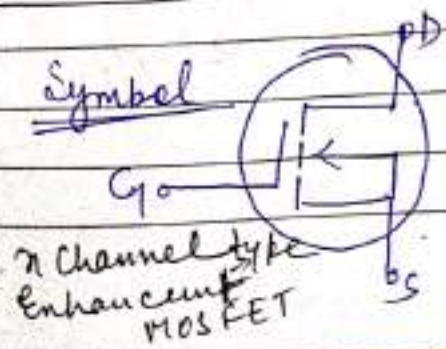 Symbol
D
G
S
n Channel type
Enhancement
MOSFET